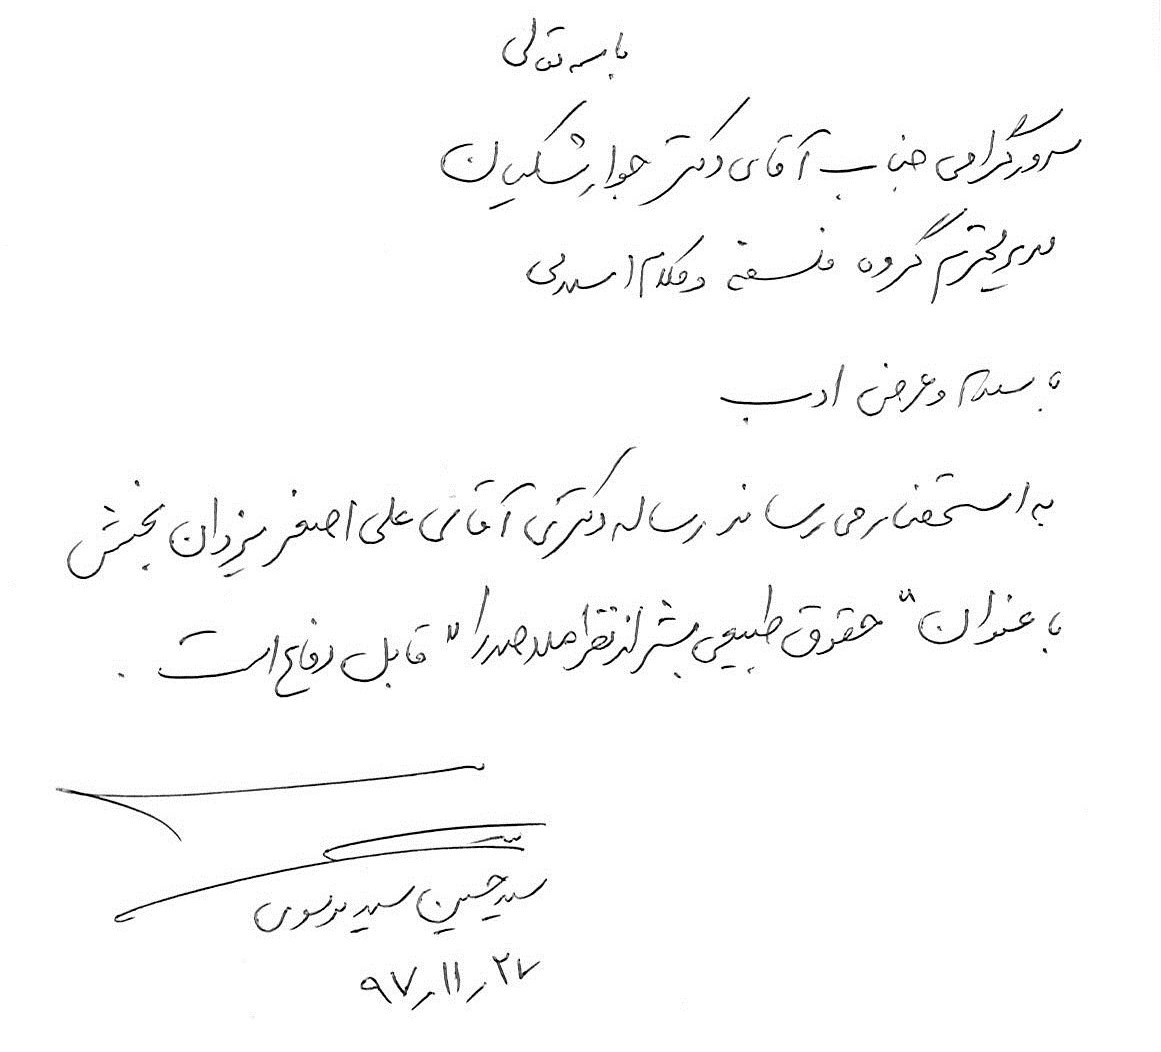 باسمه تعالی
سرور گرامی جناب آقای دکتر جوارشکیان
مدیر محترم گروه فلسفه و کلام اسلامی
با سلام و عرض ادب
به استحضار می رساند رساله دکتری آقای علی اصغر یزدان بخش
با عنوان "حقوق طبیعی بشر از نظر ملاصدرا" قابل دفاع است.
سید حسین سید موسوی
۹۷/۱۱/۲۷